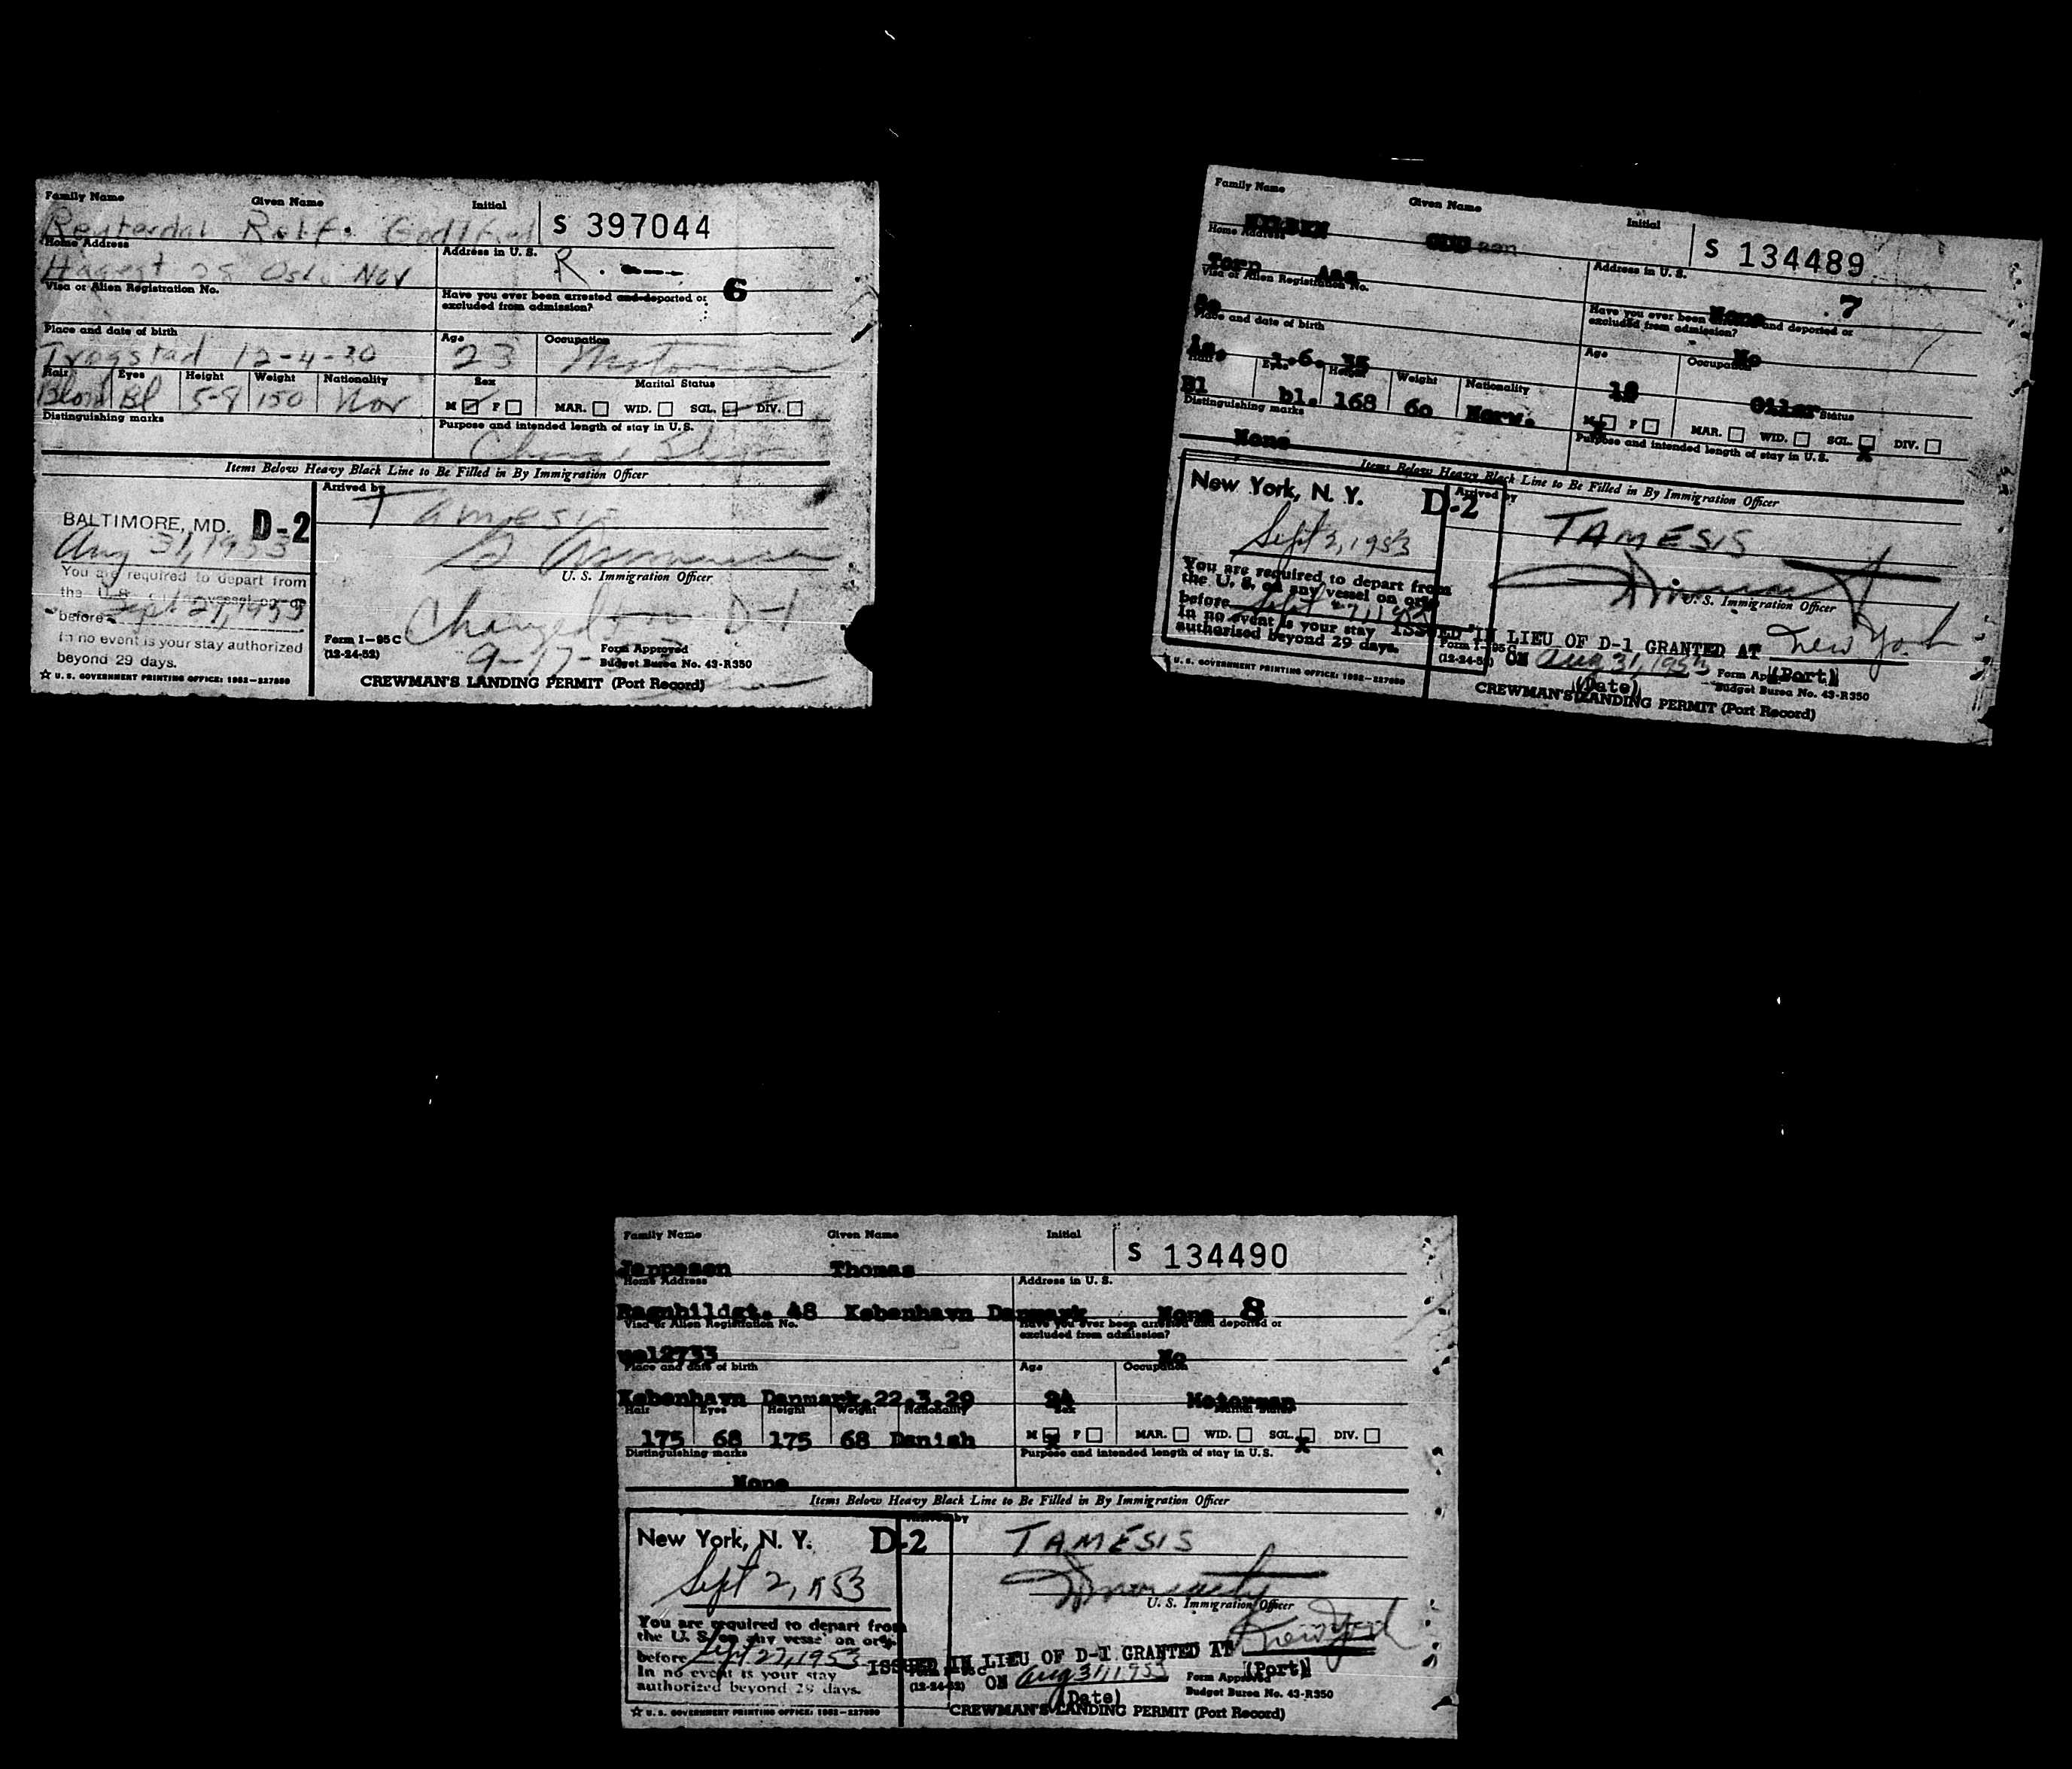 Family Name Given Name Initial
S 397044
Reuterdal Rolf. Godtfred
Home Address Address in U. S.
Hagegt 28 Oslo Nov R.
Visa or Alien Registration No. Have you ever been arrested and deported or excluded from admission? 6
Place and date of birth Age Occupation
Trogstad 12-4-30 23 Motorman
Hair Eyes Height Weight Nationality Sex Marital Status
Blond Bl 5-8 150 Nor M F MAR. WID. SGL. DIV.
Distinguishing marks Purpose and intended length of stay in U.S.
Items Below Heavy Black Line to Be Filled in By Immigration Officer
Arrived by
Tamesis
BALTIMORE, MD. D-2
Aug 31, 1953
U. S. Immigration Officer
You are required to depart from
the U.S. on any vessel on or
before Sept 27, 1953
In no event is your stay authorized
beyond 29 days.
Changed from D-1
9-17-
Form I-95 C
(12-24-52)
Form Approved
Budget Burea No. 43-R350
☆ U. S. GOVERNMENT PRINTING OFFICE: 1952-227880
CREWMAN'S LANDING PERMIT (Port Record)
Family Name Given Name Initial
S 134489
Home Address Address in U. S.
Torp None 7
Visa or Alien Registration No. Have you ever been and deported or excluded from admission?
No
Place and date of birth Age Occupation
1.6.35 18 Oiler
Hair Eyes Height Weight Nationality Status
Bl bl. 168 60 Norw. M F MAR. WID. SGL. DIV.
X X
Distinguishing marks Purpose and intended length of stay in U.S.
None
Items Below Heavy Black Line to Be Filled in By Immigration Officer
Arrived by
New York, N. Y. D-2
TAMESIS
Sept 2, 1953
U. S. Immigration Officer
You are required to depart from
the U. S. on any vessel on or
before Sept
In no event is your stay
authorized beyond 29 days.
ISSUED IN LIEU OF D-1 GRANTED AT New York
(Port)
ON Aug 31, 1953
(Date)
Form I-95 C
(12-24-52)
Form App
Budget Burea No. 43-R350
U. S. GOVERNMENT PRINTING OFFICE: 1952-227880
CREWMAN'S LANDING PERMIT (Port Record)
Family Name Given Name Initial
S 134490
Jeppesen Thomas
Home Address Address in U. S.
Ragnhildgt. 48 København Danmark None 8
Visa or Alien Registration No. Have you ever been arrested and deported or excluded from admission?
12733 No
Place and date of birth Age Occupation
København Danmark.22.3.29 24 Motorman
Hair Eyes Height Weight Nationality Sex Marital Status
175 68 175 68 Danish M F MAR. WID. SGL. DIV.
X X
Distinguishing marks Purpose and intended length of stay in U.S.
None
Items Below Heavy Black Line to Be Filled in By Immigration Officer
New York, N. Y. D-2
TAMESIS
Sept 2, 1953
U. S. Immigration Officer
You are required to depart from
the U. S. on any vessel on or
before Sept. 27, 1953
In no event is your stay
authorized beyond 29 days.
ISSUED IN LIEU OF D-1 GRANTED AT New York
(Port)
ON Aug 31, 1953
(Date)
(12-24-52)
Form Approved
Budget Burea No. 43-R350
☆ U. S. GOVERNMENT PRINTING OFFICE: 1952-227880
CREWMAN'S LANDING PERMIT (Port Record)